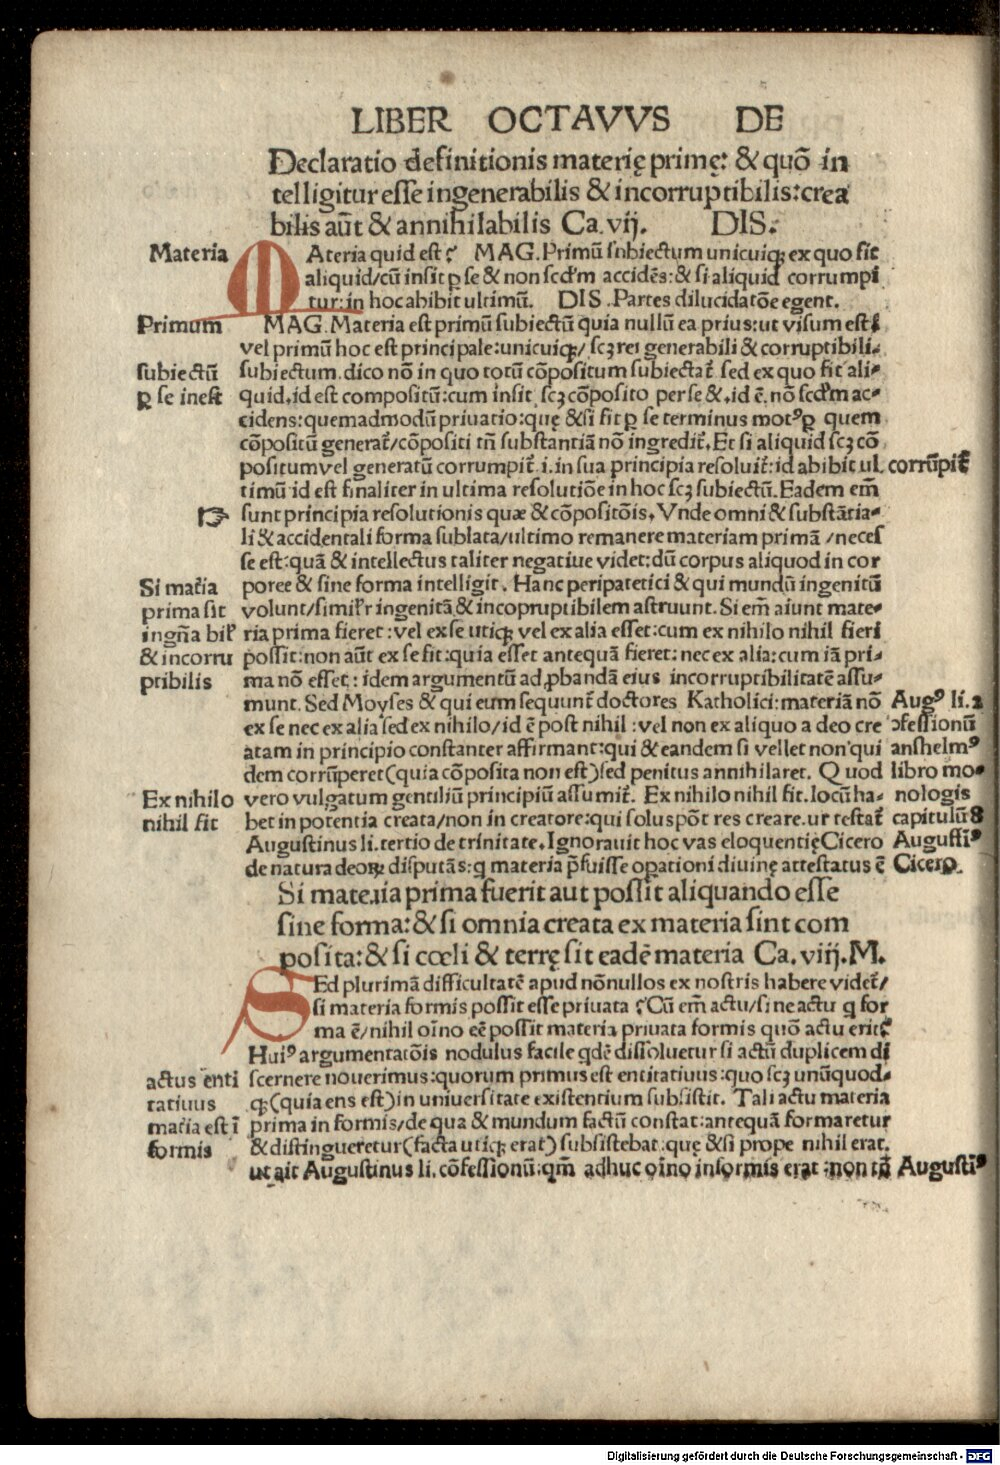 LIBER OCTAVVS DE
Declaratio definitionis materię primę: & quō in
telligitur esse ingenerabilis & incorruptibilis: crea
bilis aūt & annihilabilis Ca. vij. DIS.
Materia
MAteria quid est? MAG. Primū subiectum unicuiqꝫ ex quo fit
aliquid/cū insit ꝑ se & non scd'm accidēs: & si aliquid corrumpi
tur: in hoc abibit ultimū. DIS. Partes dilucidatōe egent.
Primum
subiectū
ꝑ se inest
MAG. Materia est primū subiectū quia nullū ea prius: ut visum est:
vel primū hoc est principale: unicuiqꝫ/ scꝫ rei generabili & corruptibili-
subiectum. dico nō in quo totū cōpositum subiectat̄ sed ex quo fit ali-
quid. id est compositū: cum insit scꝫ cōposito per se &. id ē. nō scd'm ac-
cidens: quemadmodū priuatio: quę & si fit ꝑ se terminus motꝰ ꝑ quem
cōpositū generat̄/cōpositi tn̄ substantiā nō ingredit̄. Et si aliquid scꝫ cō
positum vel generatū corrumpit̄ .i. in sua principia resoluit̄: id abibit ul
corrūpit̄
timū id est finaliter in ultima resolutiōe in hoc scꝫ subiectū. Eadem em̄
☞ sunt principia resolutionis quæ & cōpositōis. Vnde omni & substātia-
li & accidentali forma sublata/ultimo remanere materiam primā /neces
se est: quā & intellectus taliter negatiue videt: dū corpus aliquod in cor
Si mat̄ia
prima sit
ingn̄a bil'
& incorru
ptibilis
poree & sine forma intelligit. Hanc peripatetici & qui mundū ingenitū
volunt/simil'r ingenitā & incopruptibilem astruunt. Si em̄ aiunt mate-
ria prima fieret: vel ex se utiqꝫ vel ex alia esset: cum ex nihilo nihil fieri
possit: non aūt ex se fit: quia esset antequā fieret: nec ex alia: cum iā pri-
ma nō esset: idem argumentū ad ꝓbandā eius incorruptibilitatē assu-
munt. Sed Moyses & qui eum sequunt̄ doctores Katholici: materiā nō
ex se nec ex alia sed ex nihilo/id ē post nihil: vel non ex aliquo a deo cre
atam in principio constanter affirmant: qui & eandem si vellet non qui
dem corrūperet (quia cōposita non est) sed penitus annihilaret. Quod
Augꝰ li. 2
ↄfessionū
anshelmꝰ
libro mo-
nologis
capitulū 8
Augustiꝰ
Cicero.
Ex nihilo
nihil fit
vero vulgatum gentiliū principiū assumit̄. Ex nihilo nihil fit. locū ha-
bet in potentia creata/non in creatore: qui solus pōt res creare. ut testat̄
Augustinus li. tertio de trinitate. Ignorauit hoc vas eloquentię Cicero
de natura deoꝝ disputās: q materia p̄fuisse oꝑationi diuinę attestatus ē
Si materia prima fuerit aut possit aliquando esse
sine forma: & si omnia creata ex materia sint com
posita: & si cœli & terrę sit eadē materia Ca. viij. M.
SEd plurimā difficultatē apud nōnullos ex nostris habere videt̄/
si materia formis possit esse priuata? Cū em̄ actu/sine actu q for
ma ē/nihil oīno eē possit materia priuata formis quō actu erit?
Huiꝰ argumentatōis nodulus facile qdē dissoluetur si actū duplicem di
actus enti
tatiuus
mat̄ia est ī
formis
scernere nouerimus: quorum primus est entitatiuus: quo scꝫ unūquod-
qꝫ (quia ens est) in uniuersitate existentium subsistit. Tali actu materia
prima in formis/de qua & mundum factū constat: antequā formaretur
& distingueretur (facta utiqꝫ erat) subsistebat: quę & si prope nihil erat.
ut ait Augustinus li. cōfessionū: qm̄ adhuc oīno informis erat: non tn̄
Augustiꝰ
Digitalisierung gefördert durch die Deutsche Forschungsgemeinschaft - DFG